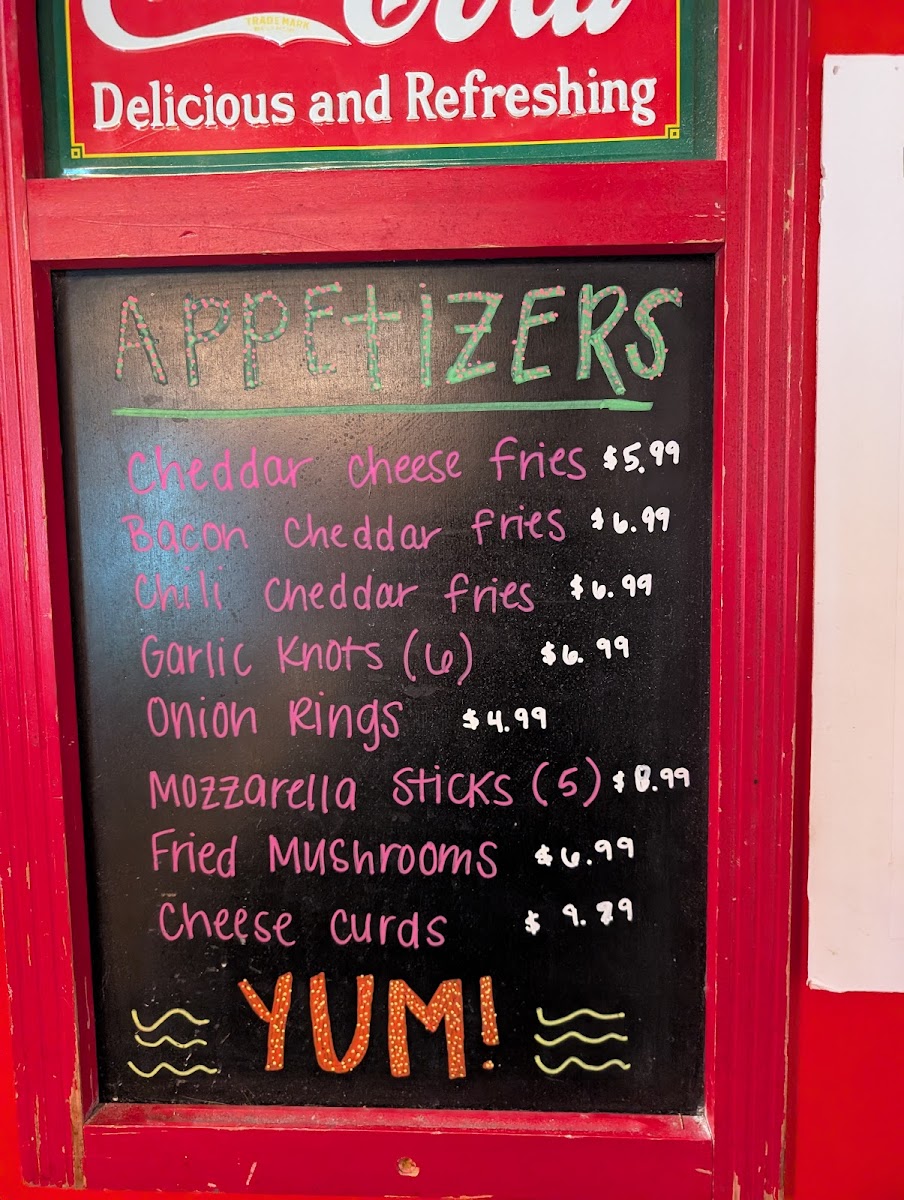 TRADE MARK
Cola
Delicious and Refreshing
APPEtiZERS
Cheddar cheese fries $5.99
Bacon cheddar fries $6.99
Chili cheddar fries $6.99
Garlic Knots (6) $6.99
Onion Rings $4.99
Mozzarella sticks (5) $8.99
Fried Mushrooms $6.99
Cheese curds
YUM!